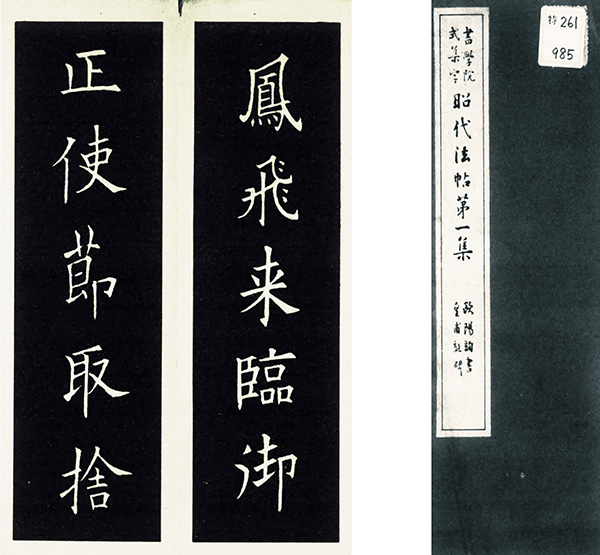 鳳飛来臨御
正使節取捨
特261
985
書學院
式集字
昭代法帖第一集
欧陽詢書
皇甫誕碑